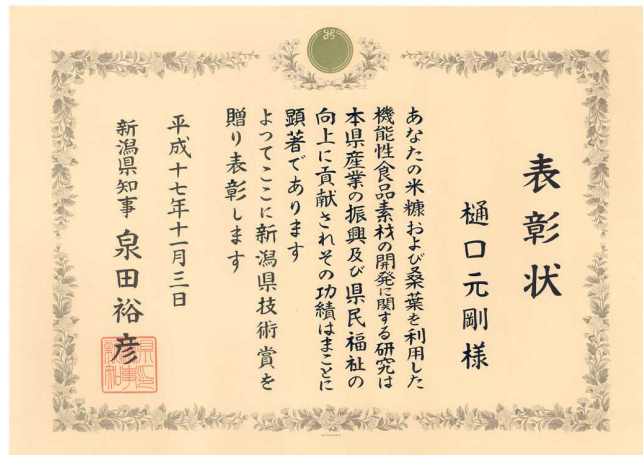 表彰状
樋口元剛様
あなたの米糠および桑葉を利用した
機能性食品素材の開発に関する研究は
本県産業の振興及び県民福祉の
向上に貢献されその功績はまことに
顕著であります
よってここに新潟県技術賞を
贈り表彰します
平成十七年十一月三日
新潟県知事 泉田裕彦